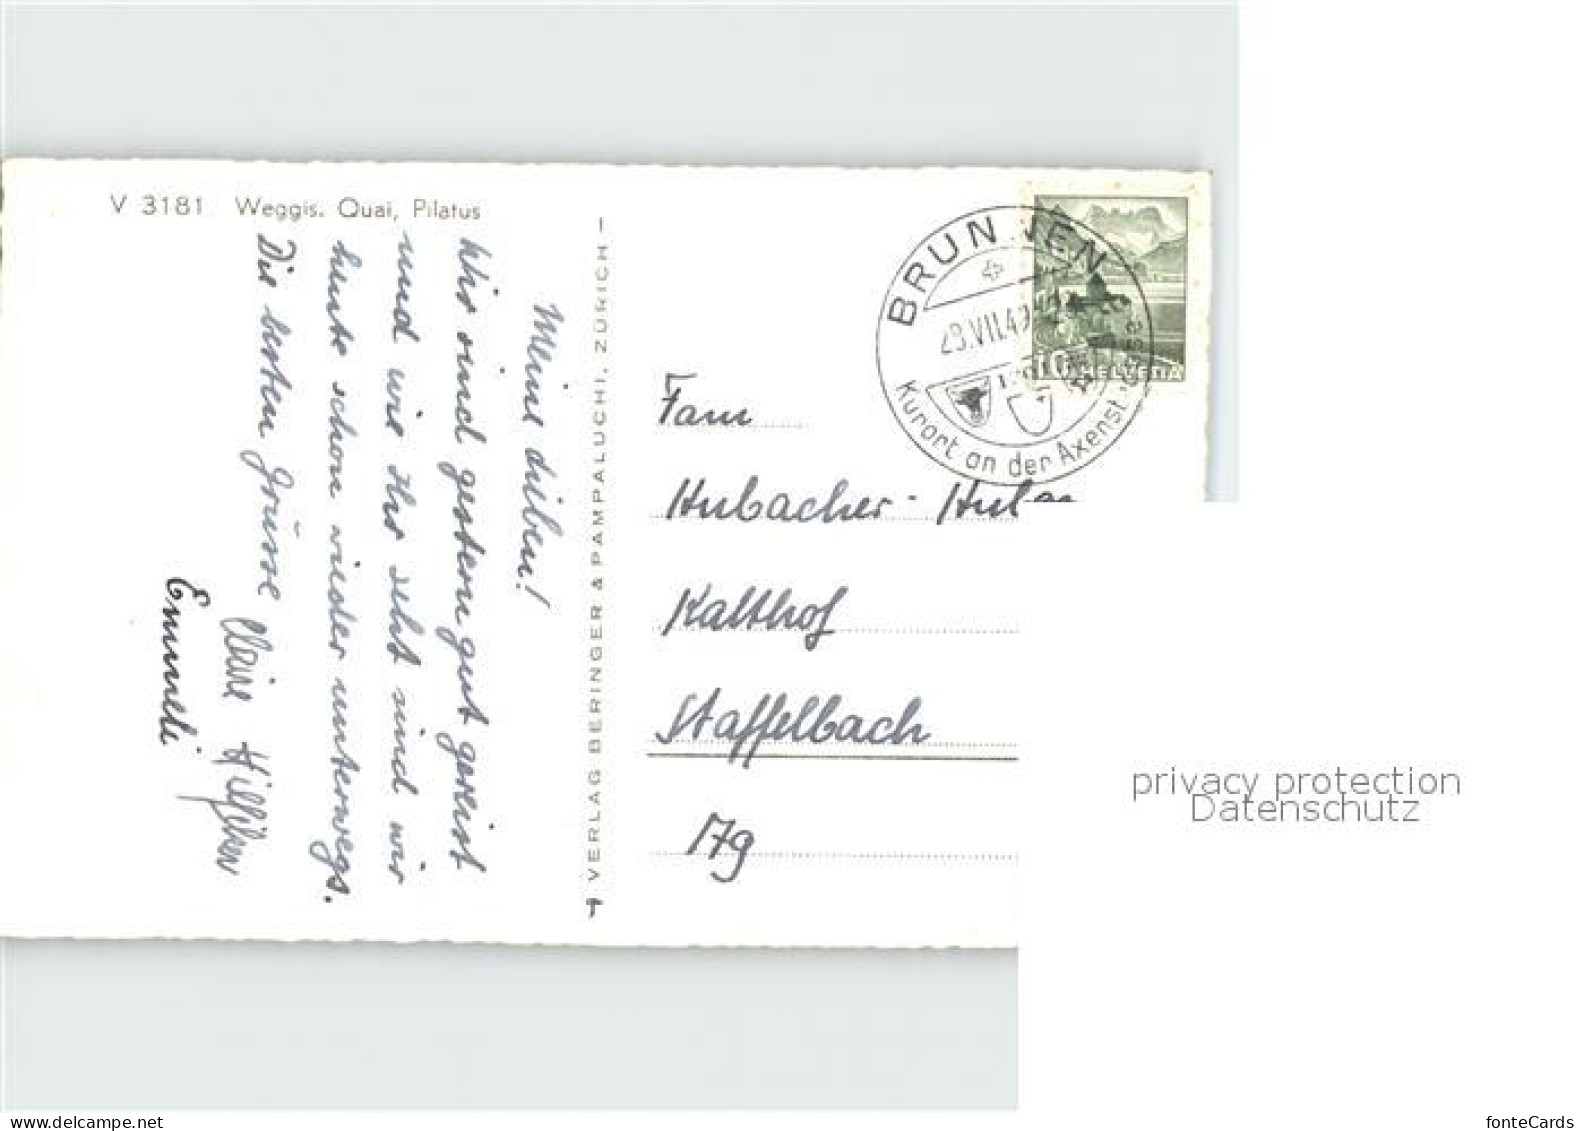 V 3181 Weggis. Quai, Pilatus
Meine Lieben!
Wir sind gestern gut gereist
und wie Ihr seht sind wir
heute schon wieder unterwegs.
Die besten Grüsse
Emmeli
VERLAG BERINGER & PAMPALUCHI, ZÜRICH
BRUNNEN
23.VII.49
Kurort an der Axenstrasse
10 HELVETIA
Fam
Hubacher-
Kalthof
Staffelbach
Ag
privacy protection
Datenschutz
fonteCards